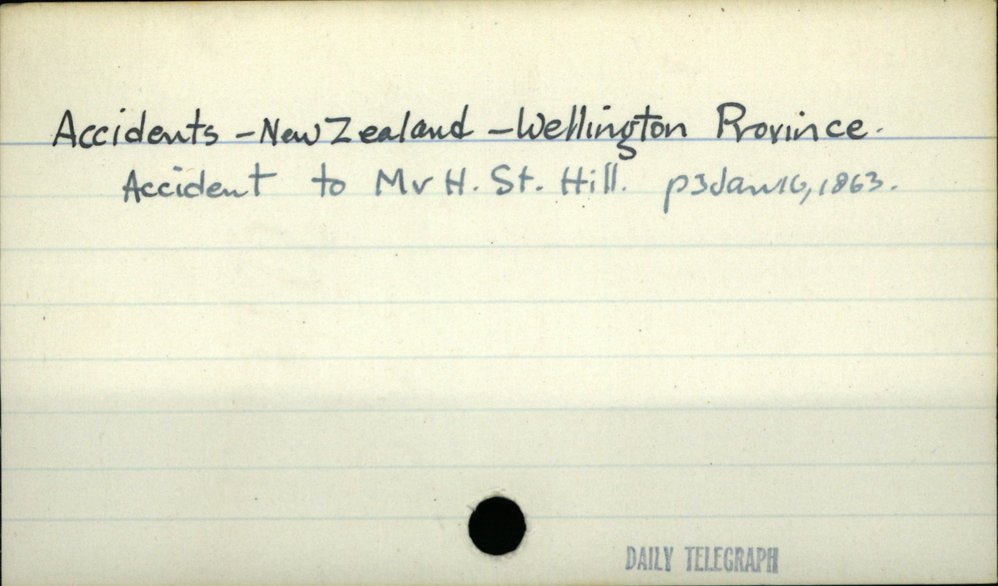 Accidents - New Zealand - Wellington Province.
Accident to Mr H. St. Hill. p3 Jan 16, 1863.
DAILY TELEGRAPH